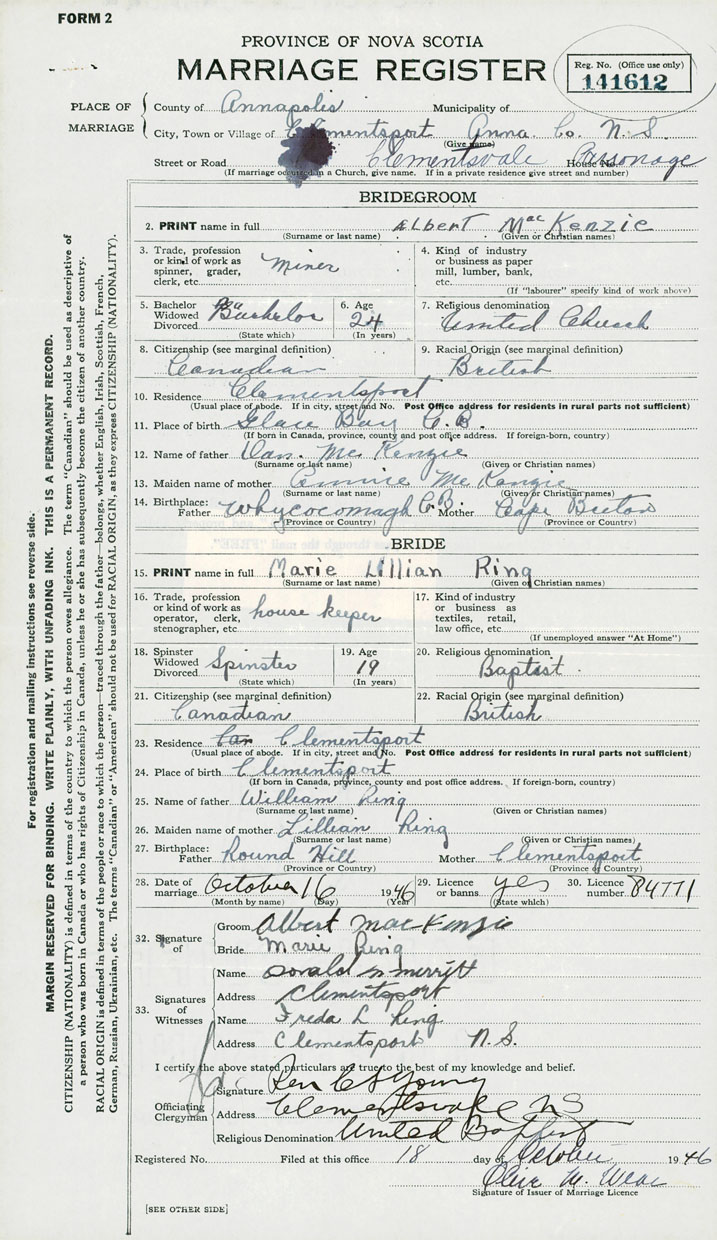 FORM 2
PROVINCE OF NOVA SCOTIA
MARRIAGE REGISTER
Reg. No. (Office use only)
141612
PLACE OF MARRIAGE
County of Annapolis Municipality of
City, Town or Village of Clementsport Anna. Co. N.S.
(Give name)
Street or Road Clementsvale House No. Parsonage
(If marriage occurred in a Church, give name. If in a private residence give street and number)
BRIDEGROOM
2. PRINT name in full Albert MacKenzie
(Surname or last name) (Given or Christian names)
3. Trade, profession or kind of work as spinner, grader, clerk, etc. Miner
4. Kind of industry or business as paper mill, lumber, bank, etc.
(If "labourer" specify kind of work above)
5. Bachelor Widowed Divorced Bachelor
(State which)
6. Age 24
(In years)
7. Religious denomination
United Church
8. Citizenship (see marginal definition)
Canadian
9. Racial Origin (see marginal definition)
British
10. Residence Clementsport
(Usual place of abode. If in city, street and No. Post Office address for residents in rural parts not sufficient)
11. Place of birth Glace Bay C.B.
(If born in Canada, province, county and post office address. If foreign-born, country)
12. Name of father Dan. Mc Kenzie
(Surname or last name) (Given or Christian names)
13. Maiden name of mother Annie Mc Kenzie
(Surname or last name) (Given or Christian names)
14. Birthplace: Father Whycocomagh C.B. Mother Cape Breton
(Province or Country) (Province or Country)
BRIDE
15. PRINT name in full Marie Lillian Ring
(Surname or last name) (Given or Christian names)
16. Trade, profession or kind of work as operator, clerk, stenographer, etc. house keeper
17. Kind of industry or business as textiles, retail, law office, etc.
(If unemployed answer "At Home")
18. Spinster Widowed Divorced Spinster
(State which)
19. Age
19
(In years)
20. Religious denomination
Baptist
21. Citizenship (see marginal definition)
Canadian
22. Racial Origin (see marginal definition)
British
23. Residence Can Clementsport
(Usual place of abode. If in city, street and No. Post Office address for residents in rural parts not sufficient)
24. Place of birth Clementsport
(If born in Canada, province, county and post office address. If foreign-born, country)
25. Name of father William Ring
(Surname or last name) (Given or Christian names)
26. Maiden name of mother Lillian Ring
(Surname or last name) (Given or Christian names)
27. Birthplace: Father Round Hill Mother Clementsport
(Province or Country) (Province or Country)
28. Date of marriage October 16 1946
(Month by name) (Day) (Year)
29. Licence or banns yes
(State which)
30. Licence number 84771
32. Signature of
Groom Albert MacKenzie
Bride Marie Ring
33. Signatures of Witnesses
Name Donald N Merritt
Address Clementsport
Name Freda L Ring
Address Clementsport N.S.
I certify the above stated particulars are true to the best of my knowledge and belief.
Officiating Clergyman
Signature Young
Address Clementsvale NS
Religious Denomination United Baptist
Registered No. Filed at this office 18 day of October 1946
Signature of Issuer of Marriage Licence
[SEE OTHER SIDE]
For registration and mailing instructions see reverse side.
MARGIN RESERVED FOR BINDING. WRITE PLAINLY, WITH UNFADING INK. THIS IS A PERMANENT RECORD.
CITIZENSHIP (NATIONALITY) is defined in terms of the country to which the person owes allegiance. The term "Canadian" should be used as descriptive of
a person who was born in Canada or who has rights of Citizenship in Canada, unless he or she has subsequently become the citizen of another country.
RACIAL ORIGIN is defined in terms of the people or race to which the person—traced through the father—belongs, whether English, Irish, Scottish, French,
German, Russian, Ukrainian, etc. The terms "Canadian" or "American" should not be used for RACIAL ORIGIN, as they express CITIZENSHIP (NATIONALITY).